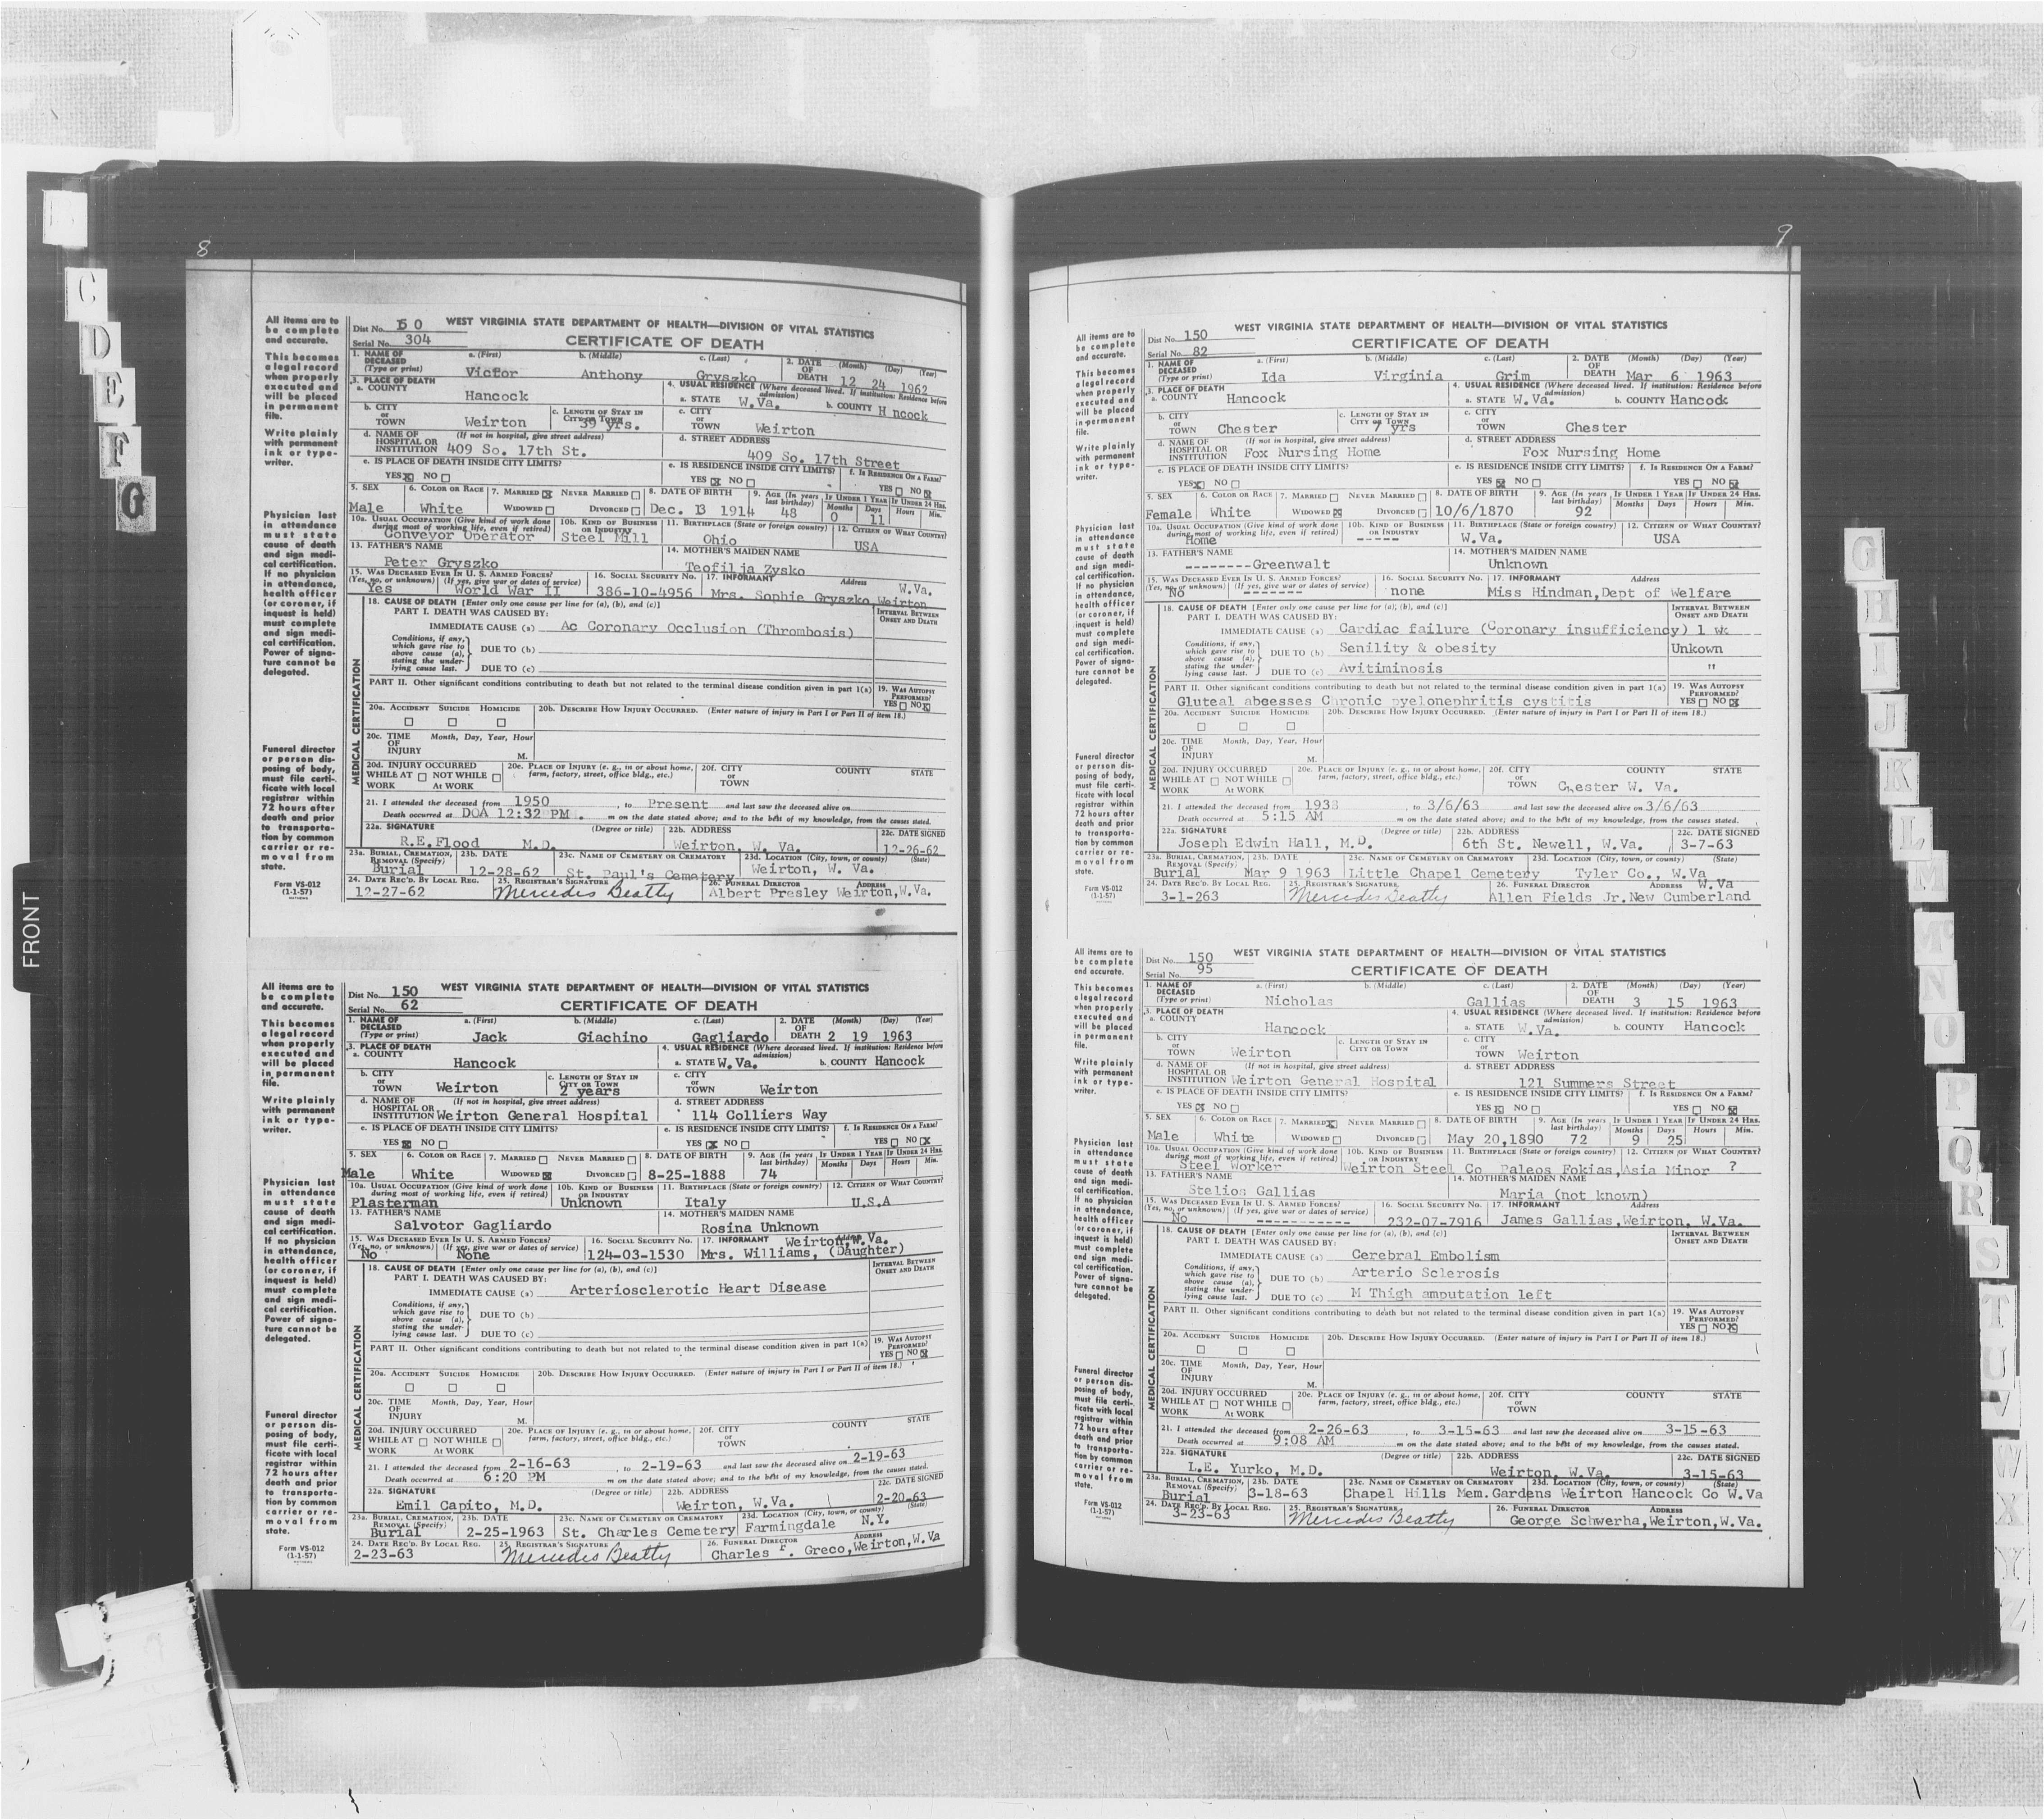 8
9
C
D
E
F
G
FRONT
All items are to
be complete
and accurate.
This becomes
a legal record
when properly
executed and
will be placed
in permanent
file.
Write plainly
with permanent
ink or type-
writer.
Physician last
in attendance
must state
cause of death
and sign medi-
cal certification.
If no physician
in attendance,
health officer
(or coroner, if
inquest is held)
must complete
and sign medi-
cal certification.
Power of signa-
ture cannot be
delegated.
Funeral director
or person dis-
posing of body,
must file certi-
ficate with local
registrar within
72 hours after
death and prior
to transporta-
tion by common
carrier or re-
moval from
state.
Form VS-012
(1-1-57)
Dist No. 150 WEST VIRGINIA STATE DEPARTMENT OF HEALTH—DIVISION OF VITAL STATISTICS
Serial No. 304 CERTIFICATE OF DEATH
1. NAME OF DECEASED (Type or print) a. (First) b. (Middle) c. (Last) 2. DATE OF DEATH (Month) (Day) (Year)
Victor Anthony Gryszko 12 24 1962
3. PLACE OF DEATH 4. USUAL RESIDENCE (Where deceased lived. If institution: Residence before admission)
a. COUNTY Hancock a. STATE W.Va. b. COUNTY H ncock
b. CITY or TOWN Weirton c. LENGTH OF STAY IN CITY OR TOWN 39 yrs. c. CITY or TOWN Weirton
d. NAME OF HOSPITAL OR INSTITUTION (If not in hospital, give street address) 409 So. 17th St. d. STREET ADDRESS 409 So. 17th Street
e. IS PLACE OF DEATH INSIDE CITY LIMITS? e. IS RESIDENCE INSIDE CITY LIMITS? f. IS RESIDENCE ON A FARM?
YES☒ NO☐ YES☒ NO☐ YES☐ NO☒
5. SEX 6. COLOR OR RACE 7. MARRIED☒ NEVER MARRIED☐ 8. DATE OF BIRTH 9. AGE (In years last birthday) IF UNDER 1 YEAR IF UNDER 24 HRS.
Male White WIDOWED☐ DIVORCED☐ Dec. 13 1914 48 Months 0 Days 11 Hours Min.
10a. USUAL OCCUPATION (Give kind of work done during most of working life, even if retired) 10b. KIND OF BUSINESS OR INDUSTRY 11. BIRTHPLACE (State or foreign country) 12. CITIZEN OF WHAT COUNTRY?
Conveyor Operator Steel Mill Ohio USA
13. FATHER'S NAME 14. MOTHER'S MAIDEN NAME
Peter Gryszko Teofilja Zysko
15. WAS DECEASED EVER IN U. S. ARMED FORCES? (Yes, no, or unknown) (If yes, give war or dates of service) 16. SOCIAL SECURITY NO. 17. INFORMANT Address
Yes World War II 386-10-4956 Mrs. Sophie Gryszko Weirton W.Va.
MEDICAL CERTIFICATION
18. CAUSE OF DEATH [Enter only one cause per line for (a), (b), and (c)] INTERVAL BETWEEN ONSET AND DEATH
PART I. DEATH WAS CAUSED BY:
IMMEDIATE CAUSE (a) Ac Coronary Occlusion (Thrombosis)
Conditions, if any, which gave rise to above cause (a), stating the underlying cause last.
DUE TO (b)
DUE TO (c)
PART II. Other significant conditions contributing to death but not related to the terminal disease condition given in part 1(a) 19. WAS AUTOPSY PERFORMED?
YES☐ NO☒
20a. ACCIDENT SUICIDE HOMICIDE 20b. DESCRIBE HOW INJURY OCCURRED. (Enter nature of injury in Part I or Part II of item 18.)
20c. TIME OF INJURY Month, Day, Year, Hour M.
20d. INJURY OCCURRED WHILE AT WORK☐ NOT WHILE AT WORK☐ 20e. PLACE OF INJURY (e. g., in or about home, farm, factory, street, office bldg., etc.) 20f. CITY or TOWN COUNTY STATE
21. I attended the deceased from 1950, to Present and last saw the deceased alive on
Death occurred at DOA 12:32 PM. m on the date stated above; and to the best of my knowledge, from the causes stated.
22a. SIGNATURE (Degree or title) 22b. ADDRESS 22c. DATE SIGNED
R.E.Flood M.D. Weirton, W. Va. 12-26-62
23a. BURIAL, CREMATION, REMOVAL (Specify) 23b. DATE 23c. NAME OF CEMETERY OR CREMATORY 23d. LOCATION (City, town, or county) (State)
Burial 12-28-62 St. Paul's Cemetery Weirton, W. Va.
24. DATE REC'D. BY LOCAL REG. 25. REGISTRAR'S SIGNATURE 26. FUNERAL DIRECTOR ADDRESS
12-27-62 Mercedes Beatty Albert Presley Weirton,W.Va.
All items are to
be complete
and accurate.
This becomes
a legal record
when properly
executed and
will be placed
in permanent
file.
Write plainly
with permanent
ink or type-
writer.
Physician last
in attendance
must state
cause of death
and sign medi-
cal certification.
If no physician
in attendance,
health officer
(or coroner, if
inquest is held)
must complete
and sign medi-
cal certification.
Power of signa-
ture cannot be
delegated.
Funeral director
or person dis-
posing of body,
must file certi-
ficate with local
registrar within
72 hours after
death and prior
to transporta-
tion by common
carrier or re-
moval from
state.
Form VS-012
(1-1-57)
Dist No. 150 WEST VIRGINIA STATE DEPARTMENT OF HEALTH—DIVISION OF VITAL STATISTICS
Serial No. 62 CERTIFICATE OF DEATH
1. NAME OF DECEASED (Type or print) a. (First) b. (Middle) c. (Last) 2. DATE OF DEATH (Month) (Day) (Year)
Jack Giachino Gagliardo 2 19 1963
3. PLACE OF DEATH 4. USUAL RESIDENCE (Where deceased lived. If institution: Residence before admission)
a. COUNTY Hancock a. STATE W.Va. b. COUNTY Hancock
b. CITY or TOWN Weirton c. LENGTH OF STAY IN CITY OR TOWN 2 years c. CITY or TOWN Weirton
d. NAME OF HOSPITAL OR INSTITUTION (If not in hospital, give street address) Weirton General Hospital d. STREET ADDRESS 114 Colliers Way
e. IS PLACE OF DEATH INSIDE CITY LIMITS? e. IS RESIDENCE INSIDE CITY LIMITS? f. IS RESIDENCE ON A FARM?
YES☒ NO☐ YES☒ NO☐ YES☐ NO☒
5. SEX 6. COLOR OR RACE 7. MARRIED☐ NEVER MARRIED☐ 8. DATE OF BIRTH 9. AGE (In years last birthday) IF UNDER 1 YEAR IF UNDER 24 HRS.
Male White WIDOWED☒ DIVORCED☐ 8-25-1888 74 Months Days Hours Min.
10a. USUAL OCCUPATION (Give kind of work done during most of working life, even if retired) 10b. KIND OF BUSINESS OR INDUSTRY 11. BIRTHPLACE (State or foreign country) 12. CITIZEN OF WHAT COUNTRY?
Plasterman Unknown Italy U.S.A
13. FATHER'S NAME 14. MOTHER'S MAIDEN NAME
Salvotor Gagliardo Rosina Unknown
15. WAS DECEASED EVER IN U. S. ARMED FORCES? (Yes, no, or unknown) (If yes, give war or dates of service) 16. SOCIAL SECURITY NO. 17. INFORMANT Address
No None 124-03-1530 Mrs. Williams, (Daughter) Weirton,W.Va.
MEDICAL CERTIFICATION
18. CAUSE OF DEATH [Enter only one cause per line for (a), (b), and (c)] INTERVAL BETWEEN ONSET AND DEATH
PART I. DEATH WAS CAUSED BY:
IMMEDIATE CAUSE (a) Arteriosclerotic Heart Disease
Conditions, if any, which gave rise to above cause (a), stating the underlying cause last.
DUE TO (b)
DUE TO (c)
PART II. Other significant conditions contributing to death but not related to the terminal disease condition given in part 1(a) 19. WAS AUTOPSY PERFORMED?
YES☐ NO☒
20a. ACCIDENT SUICIDE HOMICIDE 20b. DESCRIBE HOW INJURY OCCURRED. (Enter nature of injury in Part I or Part II of item 18.)
20c. TIME OF INJURY Month, Day, Year, Hour M.
20d. INJURY OCCURRED WHILE AT WORK☐ NOT WHILE AT WORK☐ 20e. PLACE OF INJURY (e. g., in or about home, farm, factory, street, office bldg., etc.) 20f. CITY or TOWN COUNTY STATE
21. I attended the deceased from 2-16-63, to 2-19-63 and last saw the deceased alive on 2-19-63
Death occurred at 6:20 PM m on the date stated above; and to the best of my knowledge, from the causes stated.
22a. SIGNATURE (Degree or title) 22b. ADDRESS 22c. DATE SIGNED
Emil Capito, M.D. Weirton, W.Va. 2-20-63
23a. BURIAL, CREMATION, REMOVAL (Specify) 23b. DATE 23c. NAME OF CEMETERY OR CREMATORY 23d. LOCATION (City, town, or county) (State)
Burial 2-25-1963 St. Charles Cemetery Farmingdale N.Y.
24. DATE REC'D. BY LOCAL REG. 25. REGISTRAR'S SIGNATURE 26. FUNERAL DIRECTOR ADDRESS
2-23-63 Mercedes Beatty Charles F. Greco,Weirton,W.Va
All items are to
be complete
and accurate.
This becomes
a legal record
when properly
executed and
will be placed
in permanent
file.
Write plainly
with permanent
ink or type-
writer.
Physician last
in attendance
must state
cause of death
and sign medi-
cal certification.
If no physician
in attendance,
health officer
(or coroner, if
inquest is held)
must complete
and sign medi-
cal certification.
Power of signa-
ture cannot be
delegated.
Funeral director
or person dis-
posing of body,
must file certi-
ficate with local
registrar within
72 hours after
death and prior
to transporta-
tion by common
carrier or re-
moval from
state.
Form VS-012
(1-1-57)
Dist No. 150 WEST VIRGINIA STATE DEPARTMENT OF HEALTH—DIVISION OF VITAL STATISTICS
Serial No. 82 CERTIFICATE OF DEATH
1. NAME OF DECEASED (Type or print) a. (First) b. (Middle) c. (Last) 2. DATE OF DEATH (Month) (Day) (Year)
Ida Virginia Grim Mar 6 1963
3. PLACE OF DEATH 4. USUAL RESIDENCE (Where deceased lived. If institution: Residence before admission)
a. COUNTY Hancock a. STATE W.Va. b. COUNTY Hancock
b. CITY or TOWN Chester c. LENGTH OF STAY IN CITY OR TOWN 7 yrs c. CITY or TOWN Chester
d. NAME OF HOSPITAL OR INSTITUTION (If not in hospital, give street address) Fox Nursing Home d. STREET ADDRESS Fox Nursing Home
e. IS PLACE OF DEATH INSIDE CITY LIMITS? e. IS RESIDENCE INSIDE CITY LIMITS? f. IS RESIDENCE ON A FARM?
YES☒ NO☐ YES☒ NO☐ YES☐ NO☒
5. SEX 6. COLOR OR RACE 7. MARRIED☐ NEVER MARRIED☐ 8. DATE OF BIRTH 9. AGE (In years last birthday) IF UNDER 1 YEAR IF UNDER 24 HRS.
Female White WIDOWED☒ DIVORCED☐ 10/6/1870 92 Months Days Hours Min.
10a. USUAL OCCUPATION (Give kind of work done during most of working life, even if retired) 10b. KIND OF BUSINESS OR INDUSTRY 11. BIRTHPLACE (State or foreign country) 12. CITIZEN OF WHAT COUNTRY?
Home ----- W.Va. USA
13. FATHER'S NAME 14. MOTHER'S MAIDEN NAME
--------Greenwalt Unknown
15. WAS DECEASED EVER IN U. S. ARMED FORCES? (Yes, no, or unknown) (If yes, give war or dates of service) 16. SOCIAL SECURITY NO. 17. INFORMANT Address
No ------- none Miss Hindman,Dept of Welfare
MEDICAL CERTIFICATION
18. CAUSE OF DEATH [Enter only one cause per line for (a), (b), and (c)] INTERVAL BETWEEN ONSET AND DEATH
PART I. DEATH WAS CAUSED BY:
IMMEDIATE CAUSE (a) Cardiac failure (Coronary insufficiency) 1 wk
Conditions, if any, which gave rise to above cause (a), stating the underlying cause last.
DUE TO (b) Senility & obesity Unkown
DUE TO (c) Avitiminosis "
PART II. Other significant conditions contributing to death but not related to the terminal disease condition given in part 1(a) 19. WAS AUTOPSY PERFORMED?
Gluteal abcesses Chronic pyelonephritis cystitis YES☐ NO☒
20a. ACCIDENT SUICIDE HOMICIDE 20b. DESCRIBE HOW INJURY OCCURRED. (Enter nature of injury in Part I or Part II of item 18.)
20c. TIME OF INJURY Month, Day, Year, Hour M.
20d. INJURY OCCURRED WHILE AT WORK☐ NOT WHILE AT WORK☐ 20e. PLACE OF INJURY (e. g., in or about home, farm, factory, street, office bldg., etc.) 20f. CITY or TOWN COUNTY STATE
Chester W. Va.
21. I attended the deceased from 1938, to 3/6/63 and last saw the deceased alive on 3/6/63
Death occurred at 5:15 AM m on the date stated above; and to the best of my knowledge, from the causes stated.
22a. SIGNATURE (Degree or title) 22b. ADDRESS 22c. DATE SIGNED
Joseph Edwin Hall, M.D. 6th St. Newell, W.Va. 3-7-63
23a. BURIAL, CREMATION, REMOVAL (Specify) 23b. DATE 23c. NAME OF CEMETERY OR CREMATORY 23d. LOCATION (City, town, or county) (State)
Burial Mar 9 1963 Little Chapel Cemetery Tyler Co., W.Va
24. DATE REC'D. BY LOCAL REG. 25. REGISTRAR'S SIGNATURE 26. FUNERAL DIRECTOR ADDRESS
3-1-263 Mercedes Beatty Allen Fields Jr.New Cumberland W.Va
All items are to
be complete
and accurate.
This becomes
a legal record
when properly
executed and
will be placed
in permanent
file.
Write plainly
with permanent
ink or type-
writer.
Physician last
in attendance
must state
cause of death
and sign medi-
cal certification.
If no physician
in attendance,
health officer
(or coroner, if
inquest is held)
must complete
and sign medi-
cal certification.
Power of signa-
ture cannot be
delegated.
Funeral director
or person dis-
posing of body,
must file certi-
ficate with local
registrar within
72 hours after
death and prior
to transporta-
tion by common
carrier or re-
moval from
state.
Form VS-012
(1-1-57)
Dist No. 150 WEST VIRGINIA STATE DEPARTMENT OF HEALTH—DIVISION OF VITAL STATISTICS
Serial No. 95 CERTIFICATE OF DEATH
1. NAME OF DECEASED (Type or print) a. (First) b. (Middle) c. (Last) 2. DATE OF DEATH (Month) (Day) (Year)
Nicholas Gallias 3 15 1963
3. PLACE OF DEATH 4. USUAL RESIDENCE (Where deceased lived. If institution: Residence before admission)
a. COUNTY Hancock a. STATE W.Va. b. COUNTY Hancock
b. CITY or TOWN Weirton c. LENGTH OF STAY IN CITY OR TOWN c. CITY or TOWN Weirton
d. NAME OF HOSPITAL OR INSTITUTION (If not in hospital, give street address) Weirton General Hospital d. STREET ADDRESS 121 Summers Street
e. IS PLACE OF DEATH INSIDE CITY LIMITS? e. IS RESIDENCE INSIDE CITY LIMITS? f. IS RESIDENCE ON A FARM?
YES☒ NO☐ YES☒ NO☐ YES☐ NO☒
5. SEX 6. COLOR OR RACE 7. MARRIED☒ NEVER MARRIED☐ 8. DATE OF BIRTH 9. AGE (In years last birthday) IF UNDER 1 YEAR IF UNDER 24 HRS.
Male White WIDOWED☐ DIVORCED☐ May 20,1890 72 Months 9 Days 25 Hours Min.
10a. USUAL OCCUPATION (Give kind of work done during most of working life, even if retired) 10b. KIND OF BUSINESS OR INDUSTRY 11. BIRTHPLACE (State or foreign country) 12. CITIZEN OF WHAT COUNTRY?
Steel Worker Weirton Steel Co Paleos Fokias,Asia Minor ?
13. FATHER'S NAME 14. MOTHER'S MAIDEN NAME
Stelios Gallias Maria (not known)
15. WAS DECEASED EVER IN U. S. ARMED FORCES? (Yes, no, or unknown) (If yes, give war or dates of service) 16. SOCIAL SECURITY NO. 17. INFORMANT Address
No ----------- 232-07-7916 James Gallias,Weirton, W.Va.
MEDICAL CERTIFICATION
18. CAUSE OF DEATH [Enter only one cause per line for (a), (b), and (c)] INTERVAL BETWEEN ONSET AND DEATH
PART I. DEATH WAS CAUSED BY:
IMMEDIATE CAUSE (a) Cerebral Embolism
Conditions, if any, which gave rise to above cause (a), stating the underlying cause last.
DUE TO (b) Arterio Sclerosis
DUE TO (c) M Thigh amputation left
PART II. Other significant conditions contributing to death but not related to the terminal disease condition given in part 1(a) 19. WAS AUTOPSY PERFORMED?
YES☐ NO☒
20a. ACCIDENT SUICIDE HOMICIDE 20b. DESCRIBE HOW INJURY OCCURRED. (Enter nature of injury in Part I or Part II of item 18.)
20c. TIME OF INJURY Month, Day, Year, Hour M.
20d. INJURY OCCURRED WHILE AT WORK☐ NOT WHILE AT WORK☐ 20e. PLACE OF INJURY (e. g., in or about home, farm, factory, street, office bldg., etc.) 20f. CITY or TOWN COUNTY STATE
21. I attended the deceased from 2-26-63, to 3-15-63 and last saw the deceased alive on 3-15-63
Death occurred at 9:08 AM m on the date stated above; and to the best of my knowledge, from the causes stated.
22a. SIGNATURE (Degree or title) 22b. ADDRESS 22c. DATE SIGNED
L.E. Yurko, M.D. Weirton, W.Va. 3-15-63
23a. BURIAL, CREMATION, REMOVAL (Specify) 23b. DATE 23c. NAME OF CEMETERY OR CREMATORY 23d. LOCATION (City, town, or county) (State)
Burial 3-18-63 Chapel Hills Mem.Gardens Weirton Hancock Co W.Va
24. DATE REC'D. BY LOCAL REG. 25. REGISTRAR'S SIGNATURE 26. FUNERAL DIRECTOR ADDRESS
3-23-63 Mercedes Beatty George Schwerha,Weirton,W.Va.
G
H
I
J
K
L
M
Mc
N
O
P
Q
R
S
T
U
V
W
X
Y
Z